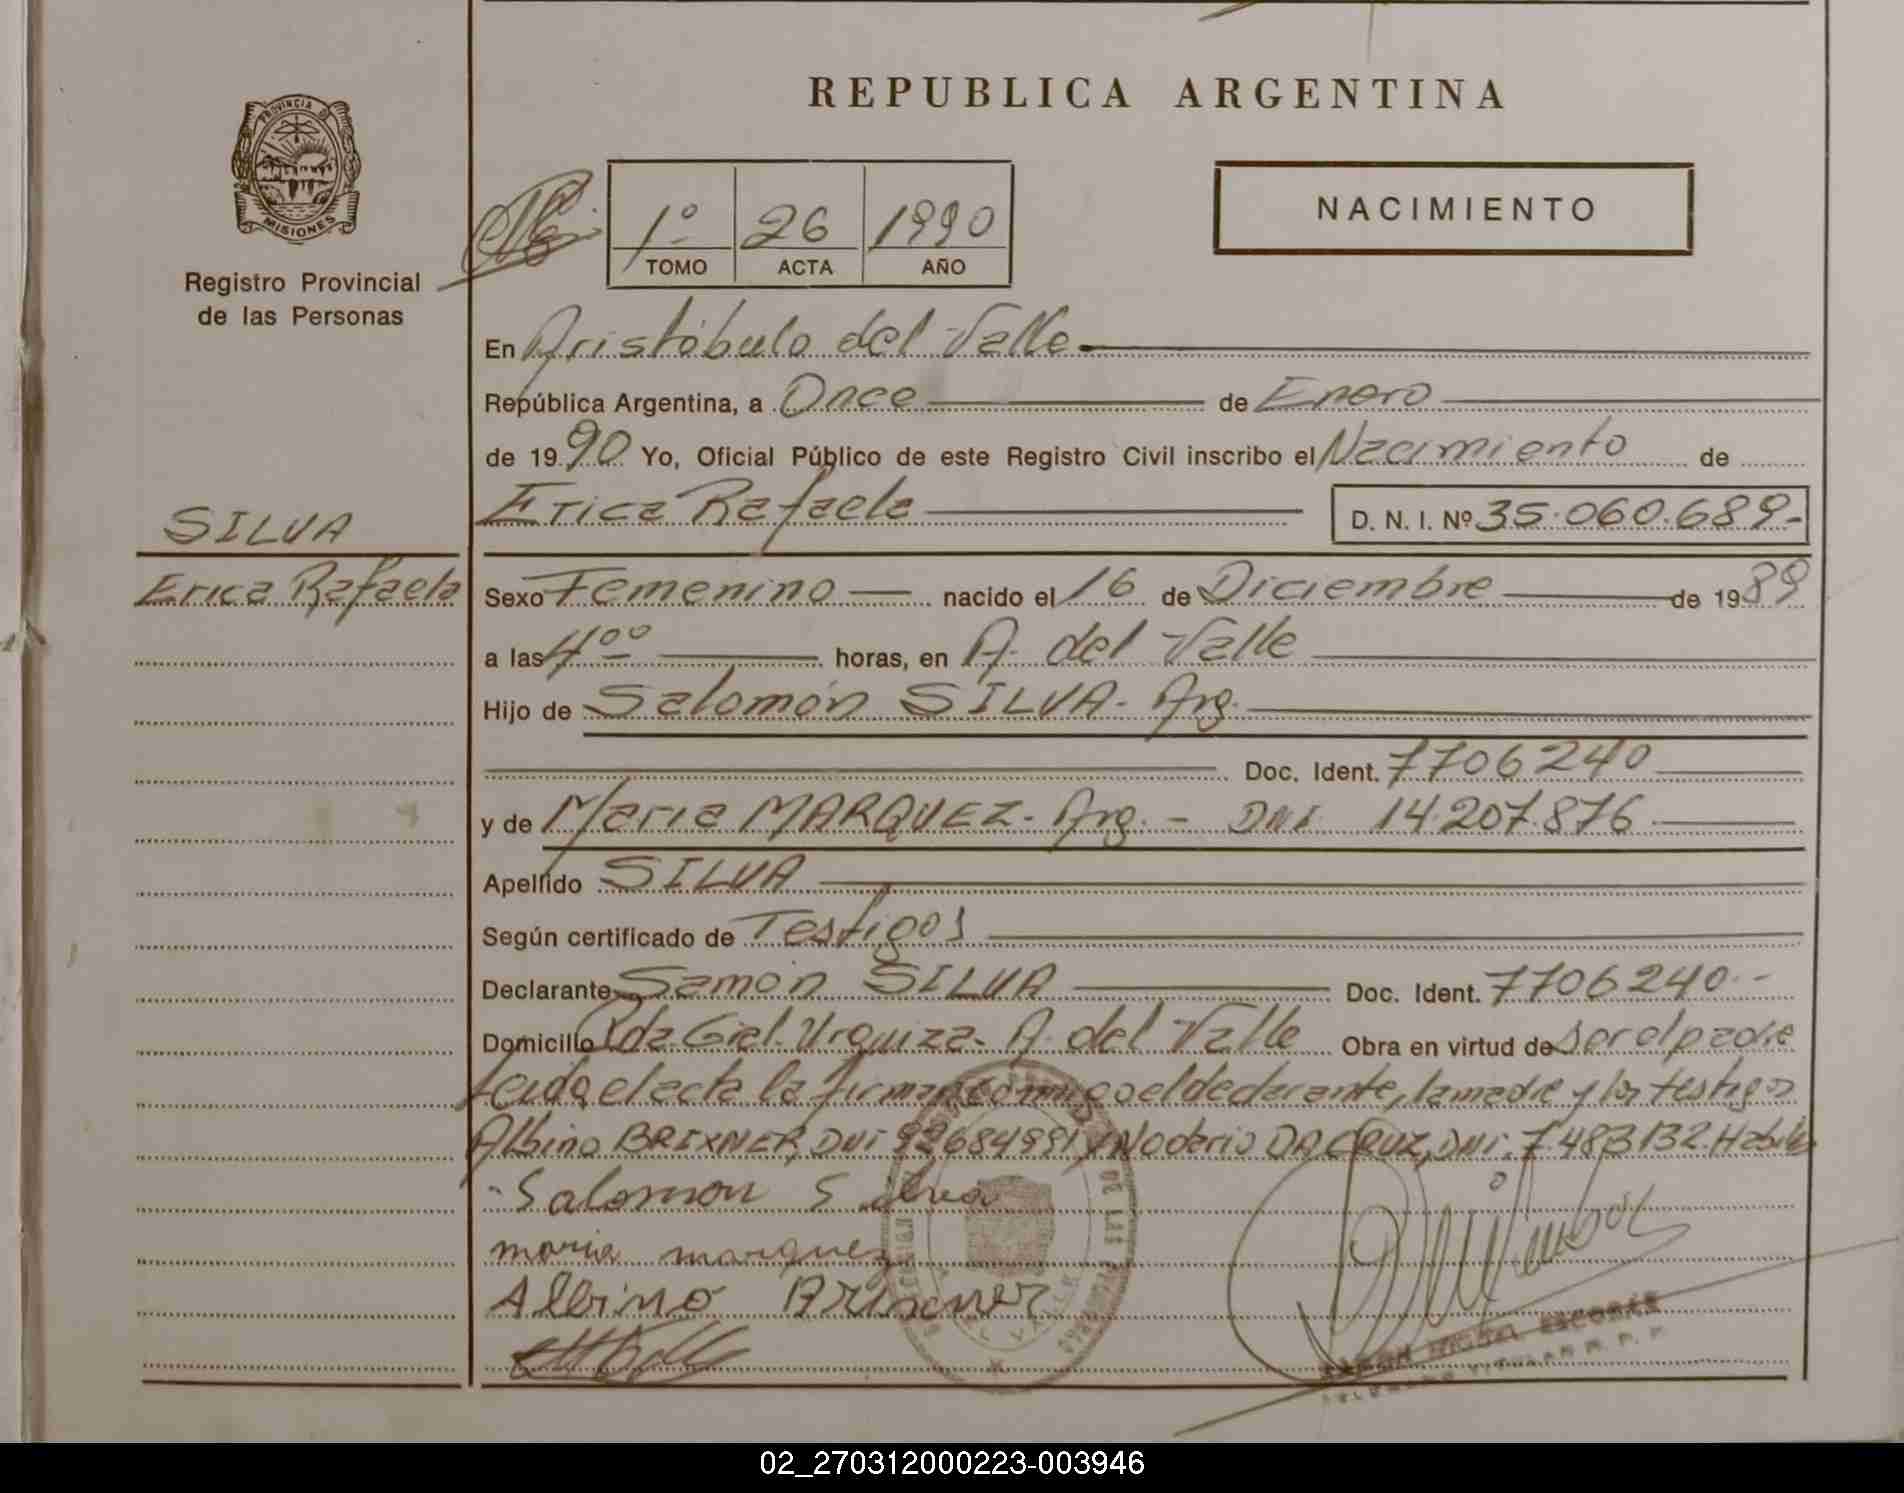 REPUBLICA ARGENTINA
PROVINCIA DE
MISIONES
Registro Provincial
de las Personas
1º 26 1990
TOMO ACTA AÑO
NACIMIENTO
En Aristóbulo del Valle
República Argentina, a Once de Enero
de 1990 Yo, Oficial Público de este Registro Civil inscribo el Nacimiento de
Erica Rafaela D. N. I. Nº 35.060.689-
SILVA
Erica Rafaela
Sexo Femenino nacido el 16 de Diciembre de 1989
a las 4ºº horas, en A. del Valle
Hijo de Salomón SILVA. Arg.
Doc. Ident. 7706240
y de Maria MARQUEZ. Arg. - DNI 14.207.876
Apellido SILVA
Según certificado de Testigos
Declarante Samón SILVA Doc. Ident. 7706240.-
Domicilio Pda. Gral. Urquiza. A. del Valle Obra en virtud de ser el padre
Leida el acta la firman conmigo el declarante, la madre y los testigos
Albino BRIXNER, DNI 92684991 y Noderio DA CRUZ, DNI. 7.483132. Habiles
Salomon Silva
maria marquez
Albino Brixner
02_270312000223-003946